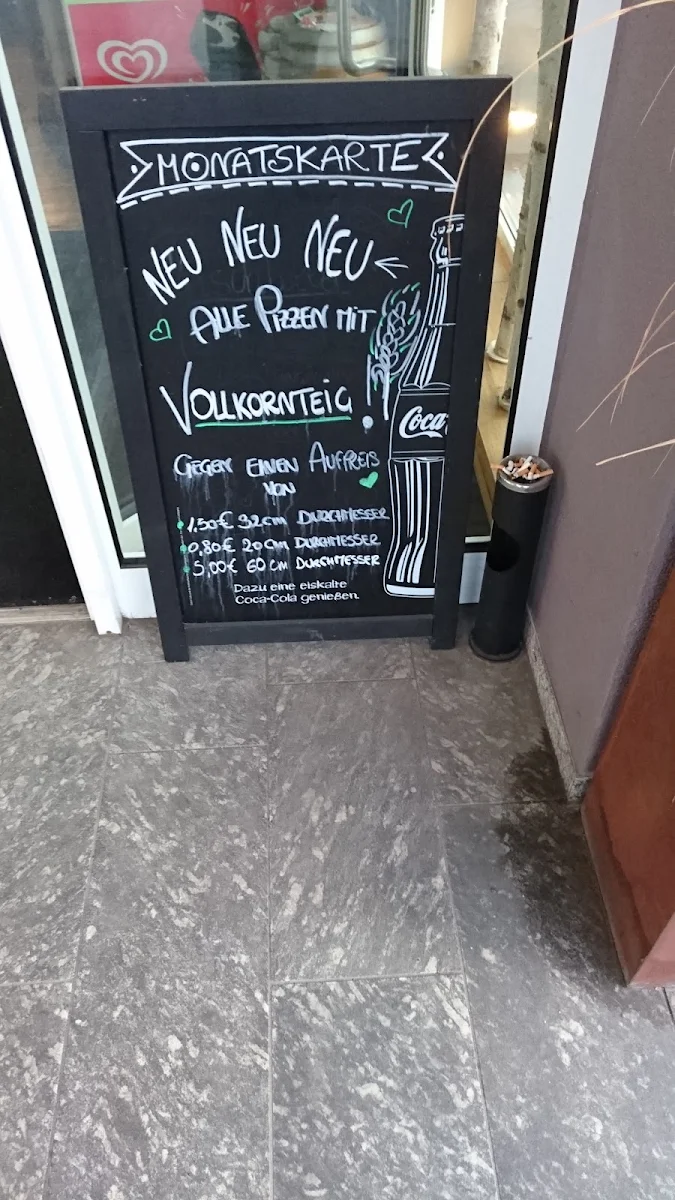 MONATSKARTE
NEU NEU NEU
ALLE PIZZEN MIT
VOLLKORNTEIG!
GEGEN EINEN AUFPREIS
VON
1,50€ 32cm DURCHMESSER
0,80€ 20cm DURCHMESSER
5,00€ 60cm DURCHMESSER
Dazu eine eiskalte
Coca-Cola genießen.
Coca